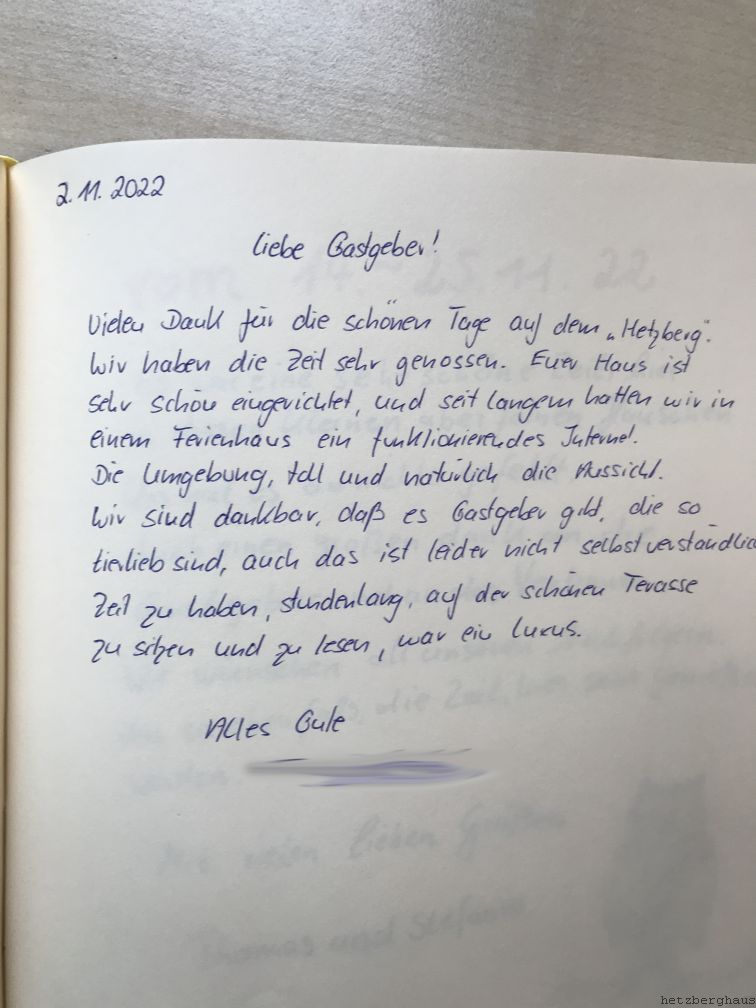 2.11.2022
Liebe Gastgeber!
Vielen Dank für die schönen Tage auf dem „Hetzberg".
Wir haben die Zeit sehr genossen. Euer Haus ist
sehr schön eingerichtet, und seit langem hatten wir in
einem Ferienhaus ein funktionierendes Internet.
Die Umgebung, toll und natürlich die Aussicht.
Wir sind dankbar, daß es Gastgeber gibt, die so
tierlieb sind, auch das ist leider nicht selbstverständlic
Zeit zu haben, stundenlang, auf der schönen Terasse
zu sitzen und zu lesen, war ein Luxus.
Alles Gute
vom 14.-25.11.22
lieben
Thomas und Stefanie
hetzberghaus